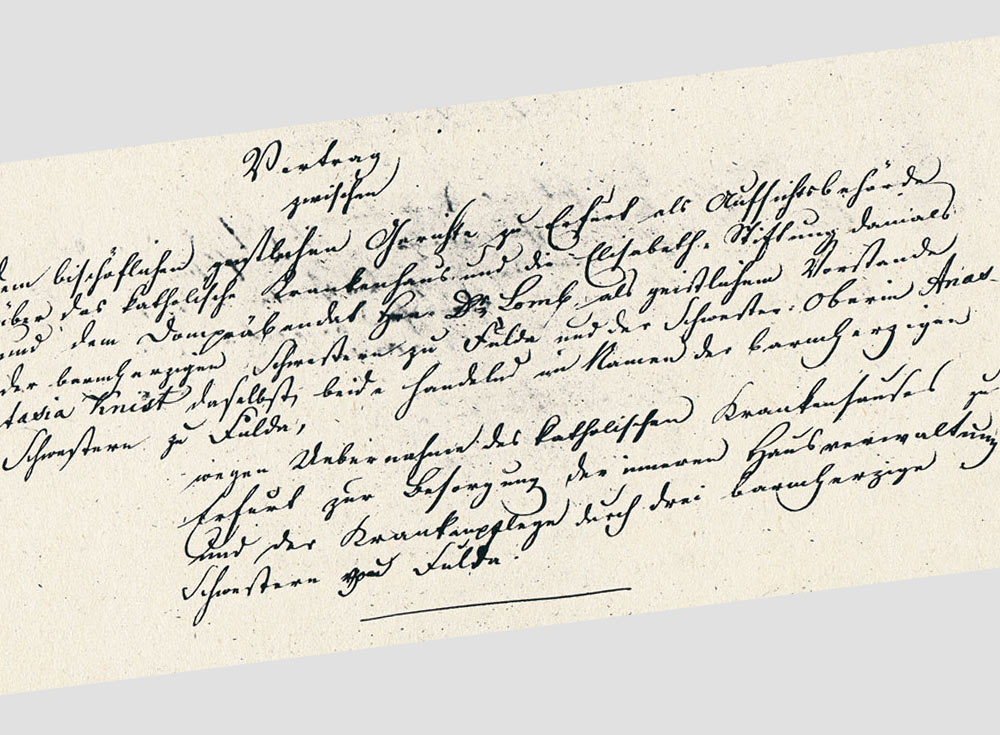 Vertrag
zwischen
dem bischöflichen geistlichen Gerichte zu Erfurt als Aufsichtsbehörde
über das katholische Krankenhaus und die Elisabeth-Stiftung damals
und dem Dompräbendat Herr Dr. Lomb als geistlichem Vorstande
der barmherzigen Schwestern zu Fulda und der Schwester-Oberin Anas-
tasia Knist daselbst, beide handelnd im Namen der barmherzigen
Schwestern zu Fulda,
wegen Uebernahme des katholischen Krankenhauses zu
Erfurt zur Besorgung der inneren Hausverwaltung
und der Krankenpflege durch drei barmherzige
Schwestern von Fulda.